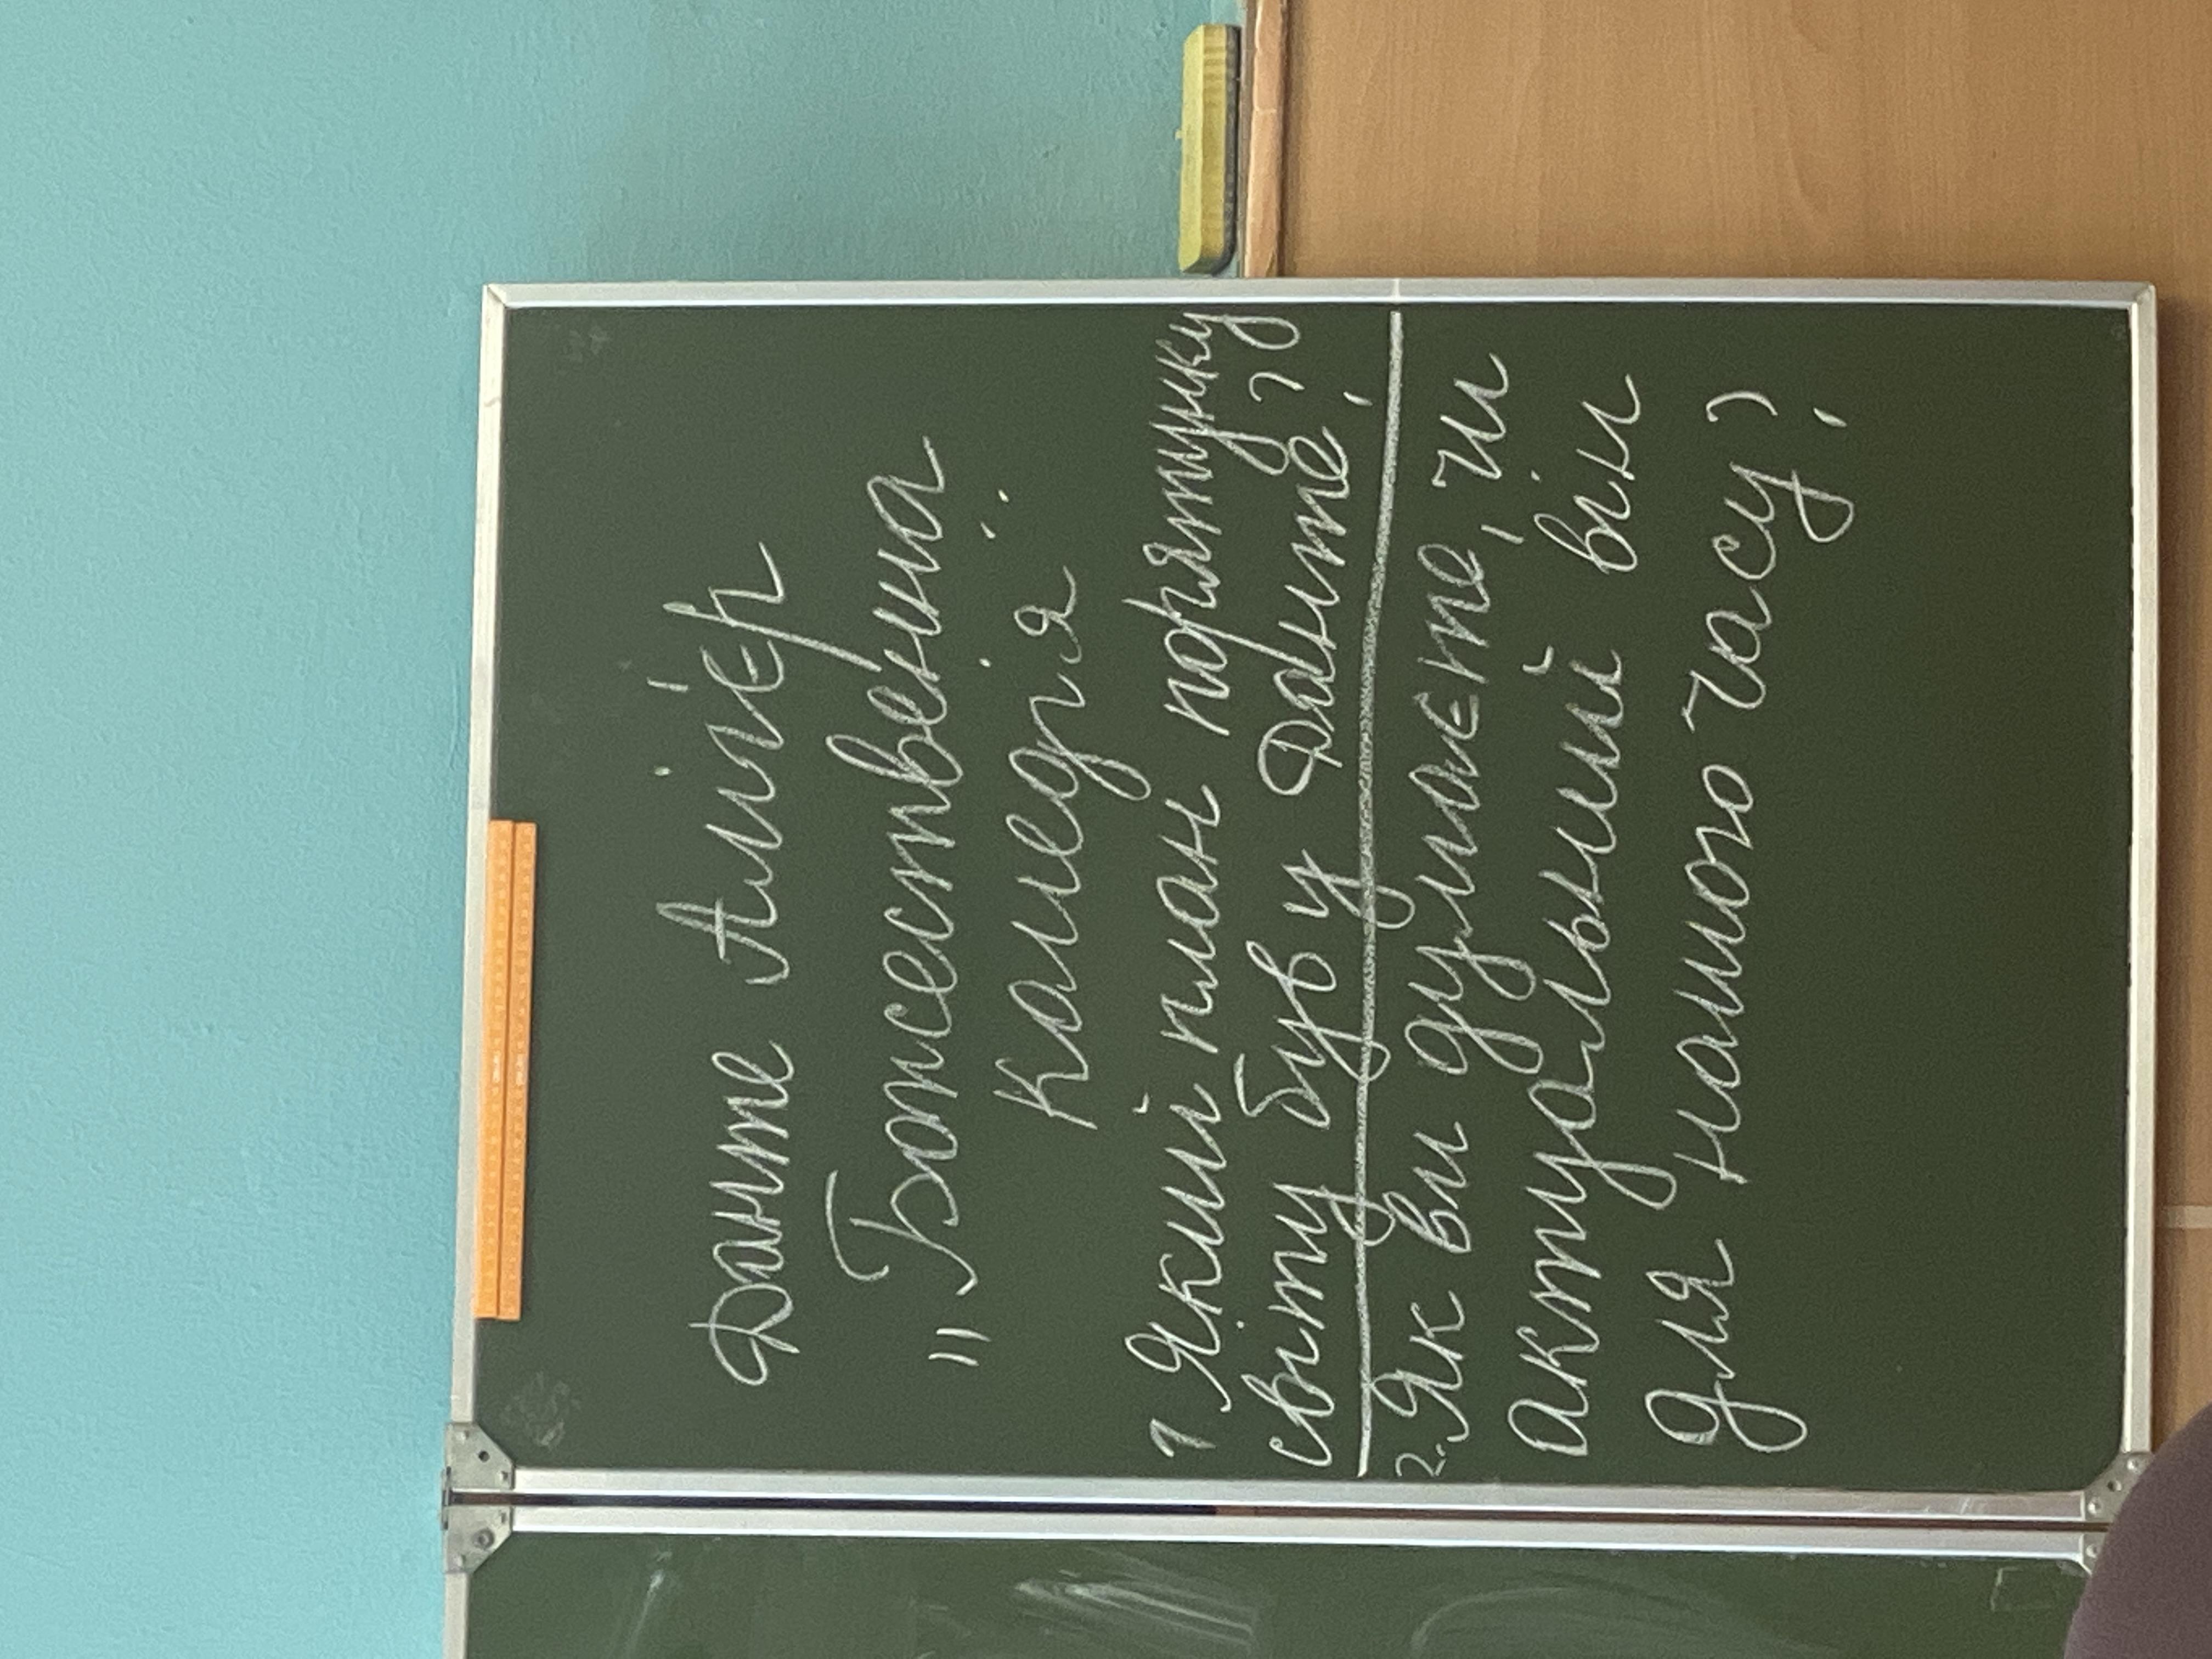 Данте Аліг'єр
"Божественна
комедія"
1 Який план порятунку
світу був у Данте?
2. Як ви думаєте, чи
актуальний він
для нашого часу?